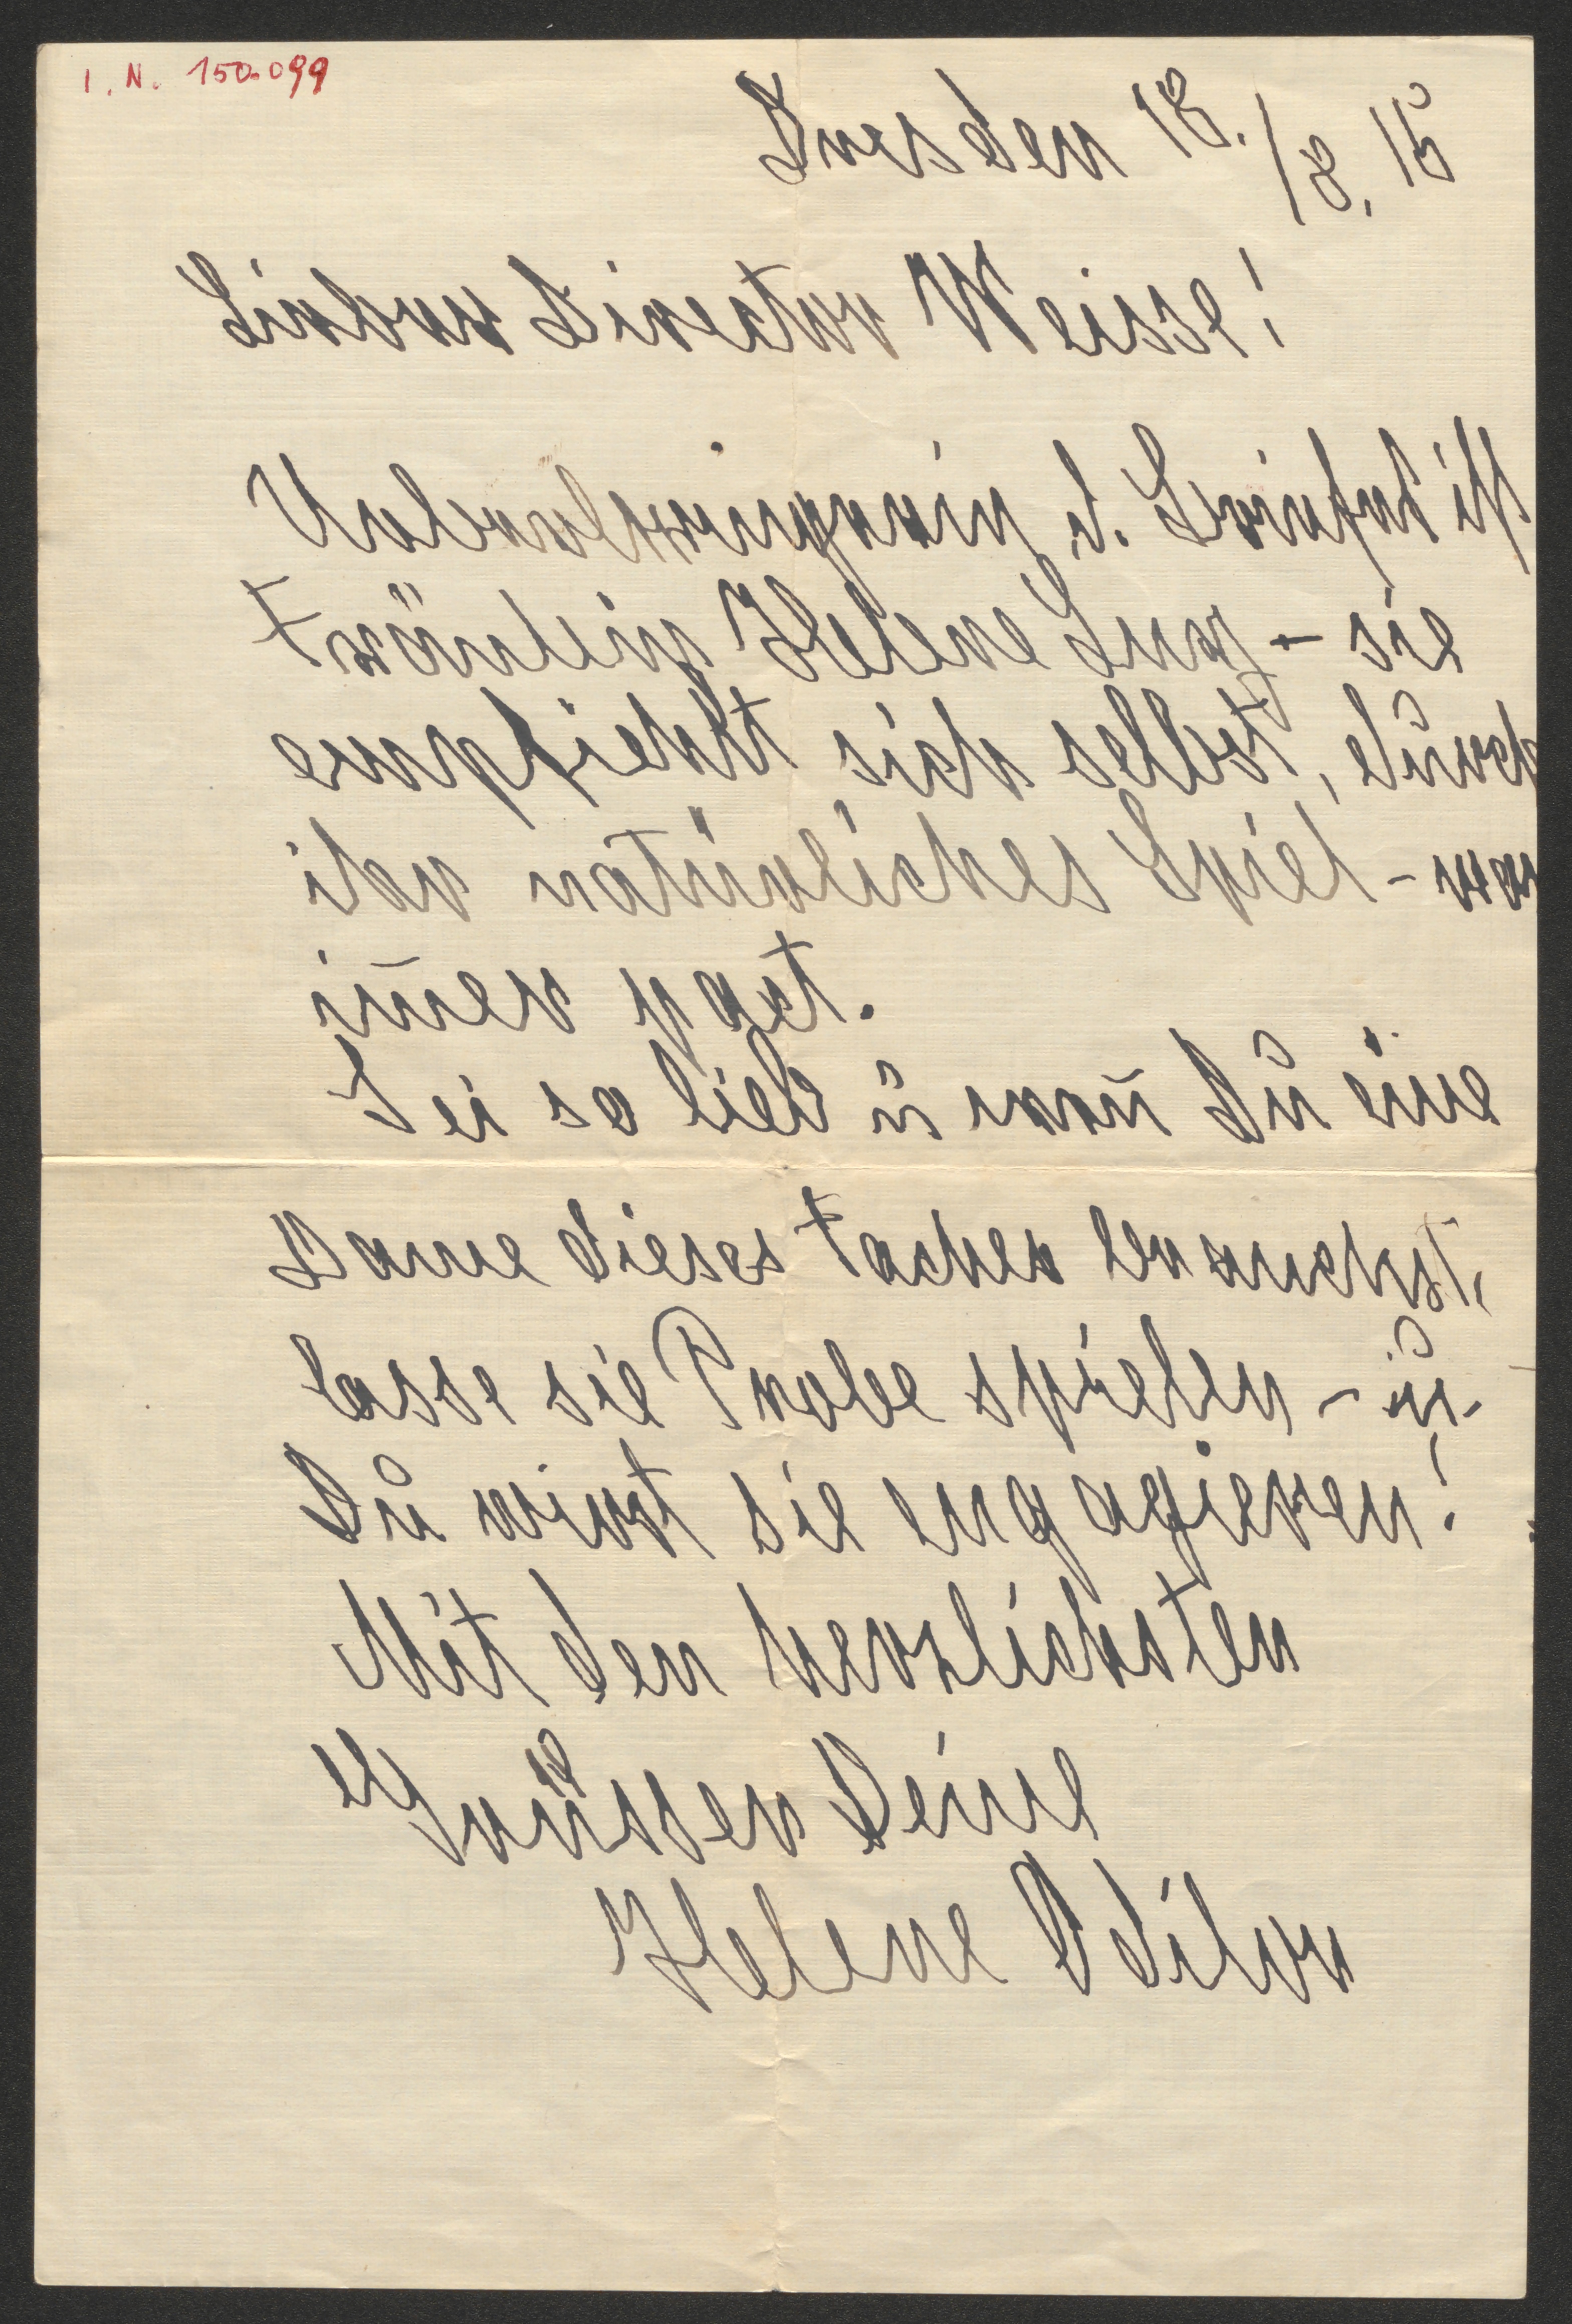 I. N. 150.099
Dresden 18./8. 15
Lieber Director Weisse!
Ueberbringerin d. Briefes ist
Fräulein Helene Lux – sie
empfiehlt sich selbst, durch
ihr natürliches Spiel – was
im̄er
Sei so lieb u. wen̄ Du eine
Dame dieses Faches brauchst,
lasse sie Probe spielen – u.
Du wirst sie engagieren!
Mit den herzlichsten
Grüssen Deine
Helene Odilon